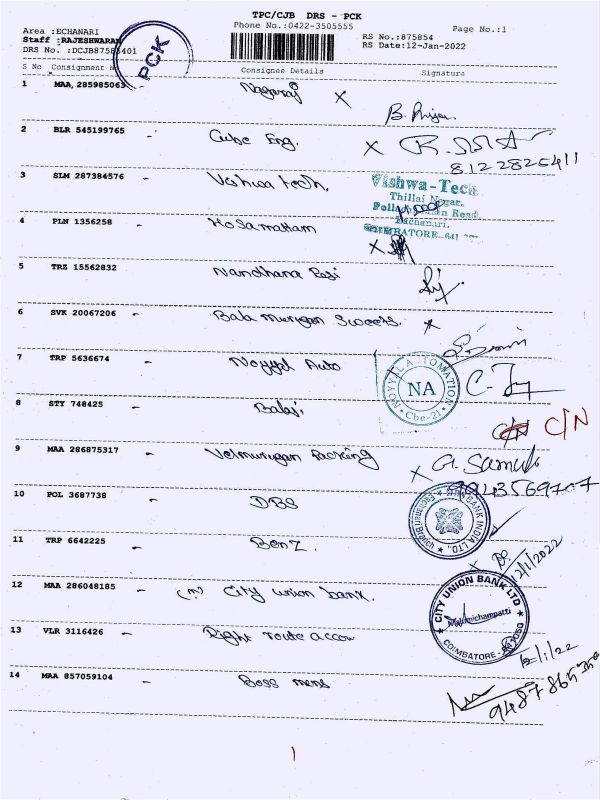 TPC/CJB DRS - PCK
Phone No.:0422-3505555
Page No.:1
Area :ECHANARI
Staff :RAJESHWARAN
RS No.:875854
DRS No. :DCJB875854
RS Date:12-Jan-2022
PCK
S No Consignment Consignee Details Signature
1 MAA, 285985063 - Nagaraj X B. Priya
2 BLR 545199765 - Cube Eng. X
8122826411
3 SLM 287384576 - Vishwa tech.
Vishwa-Tech
Thillai Nagar,
Road
Eachanari,
COIMBATORE-641
4 PLN 1356258 - Hosamattam X
5 TRZ 15562832 Nandhana
6 SVK 20067206 - Bala Murugan Sweets. X
7 TRP 5636674 - Noyyal Auto
NOYYAL AUTOMATION
NA
Cbe-21
8 STY 748425 - Balaji
C/N C/N
9 MAA 286875317 - Velmurugan Packing X G. Samuel
9943569707
10 POL 3687738 - DBS
BANK INDIA LTD.
11 TRP 6642225 - Benz. X
12/1/2022
12 MAA 286048185 - (m) City union bank.
CITY UNION BANK LTD
Malumichampatti
COIMBATORE
13 VLR 3116426 - Right route accou
12/1/22
14 MAA 857059104 - Boss mens
1